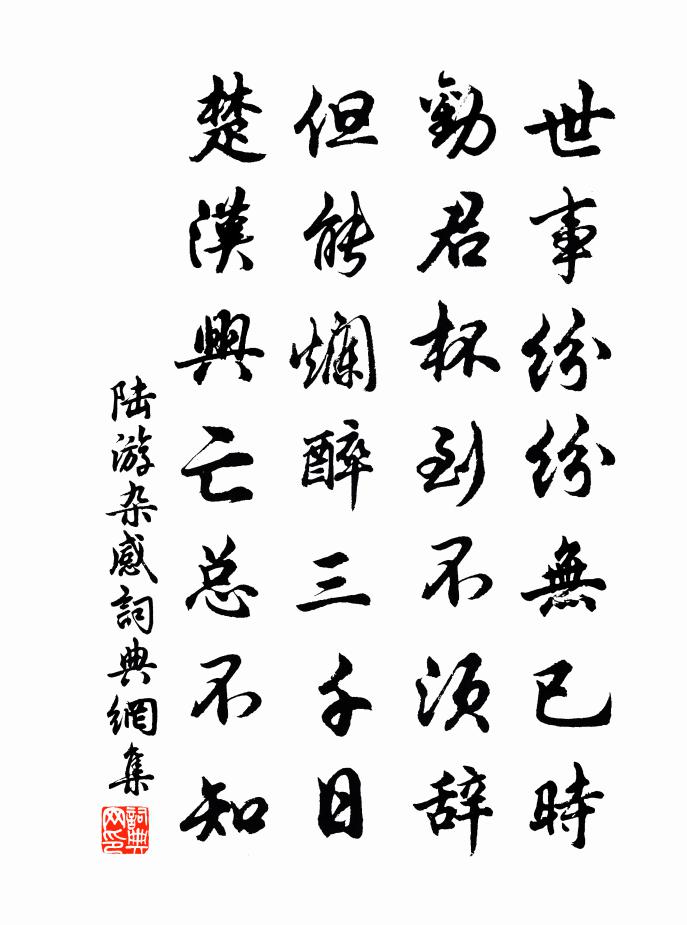 世事紛紛無已時
勸君杯到不須辞
但能爛醉三千日
楚漢興亡总不知
陆游杂感詞典網集
詞典网印